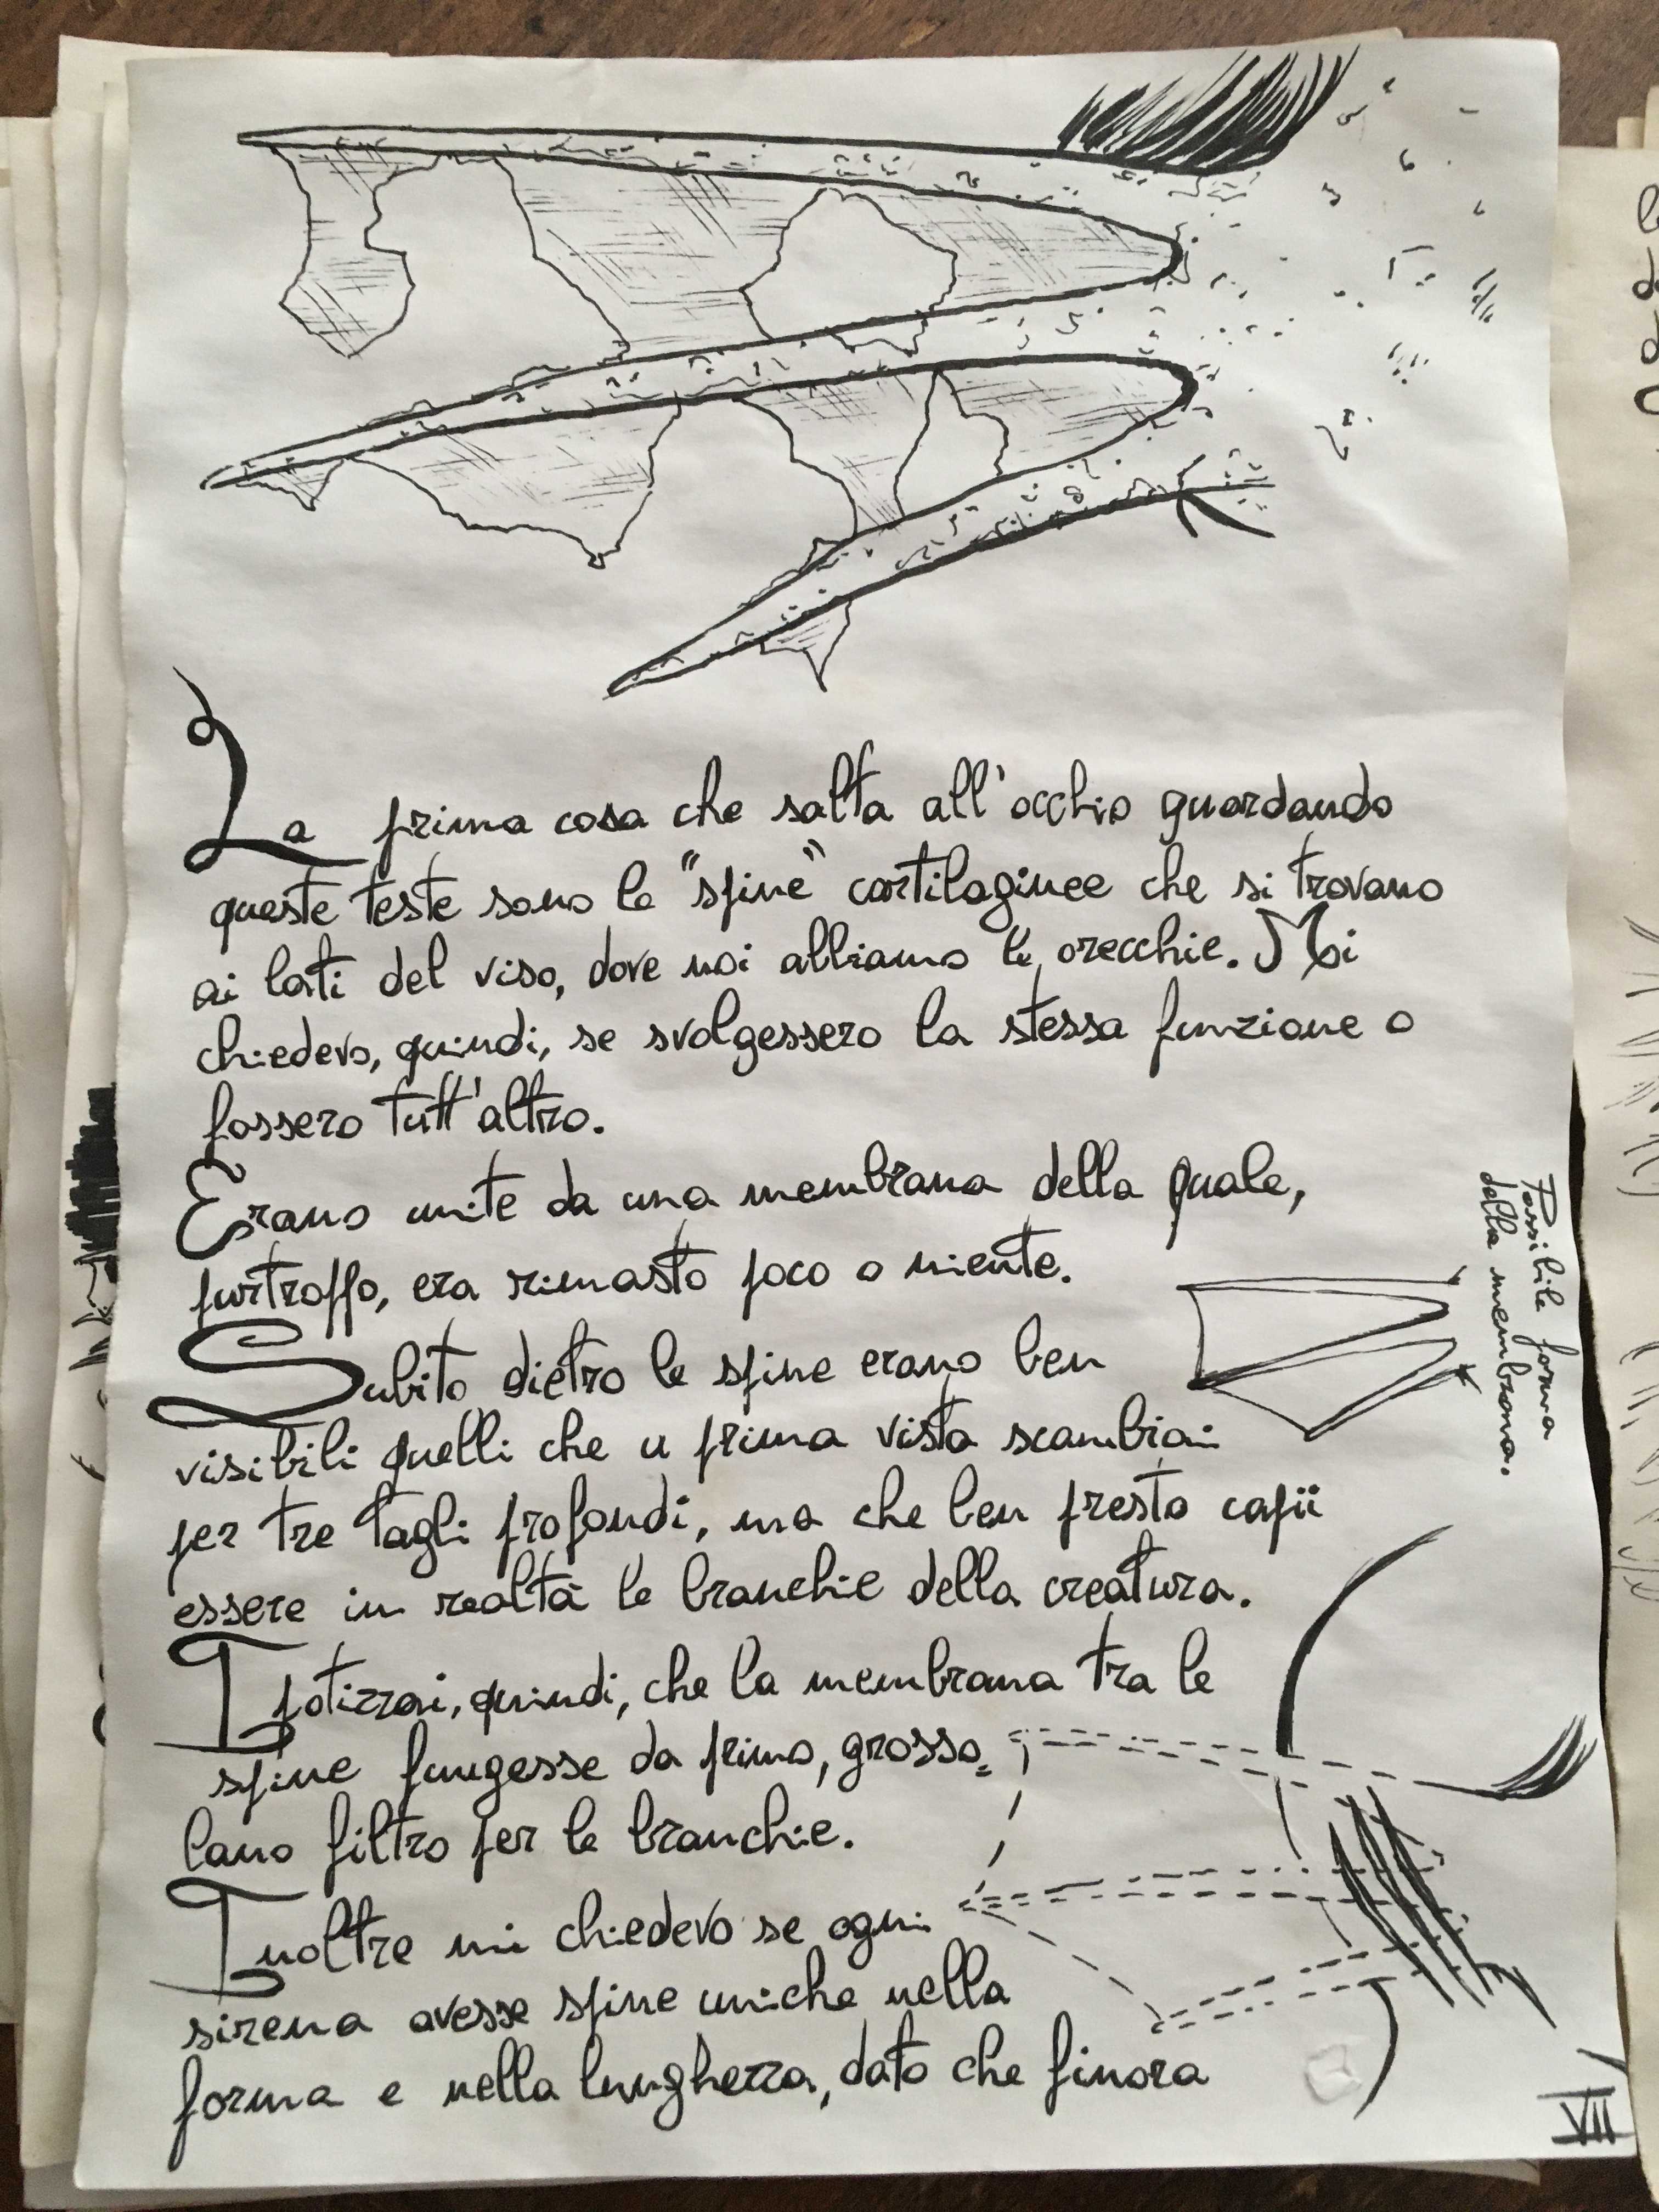 La prima cosa che salta all'occhio guardando
queste teste sono le "spine" cartilaginee che si trovano
ai lati del viso, dove noi abbiamo le orecchie. Mi
chiedevo, quindi, se svolgessero la stessa funzione o
fossero tutt'altro.
Erano unite da una membrana della quale,
purtroppo, era rimasto poco o niente.
Possibile forma
della membrana.
Subito dietro le spine erano ben
visibili quelli che a prima vista scambiai
per tre tagli profondi, ma che ben presto capii
essere in realtà le branchie della creatura.
Ipotizzai, quindi, che la membrana tra le
spine fungesse da primo, grosso=
lano filtro per le branchie.
Inoltre mi chiedevo se ogni
sirena avesse spine uniche nella
forma e nella lunghezza, dato che finora
VII